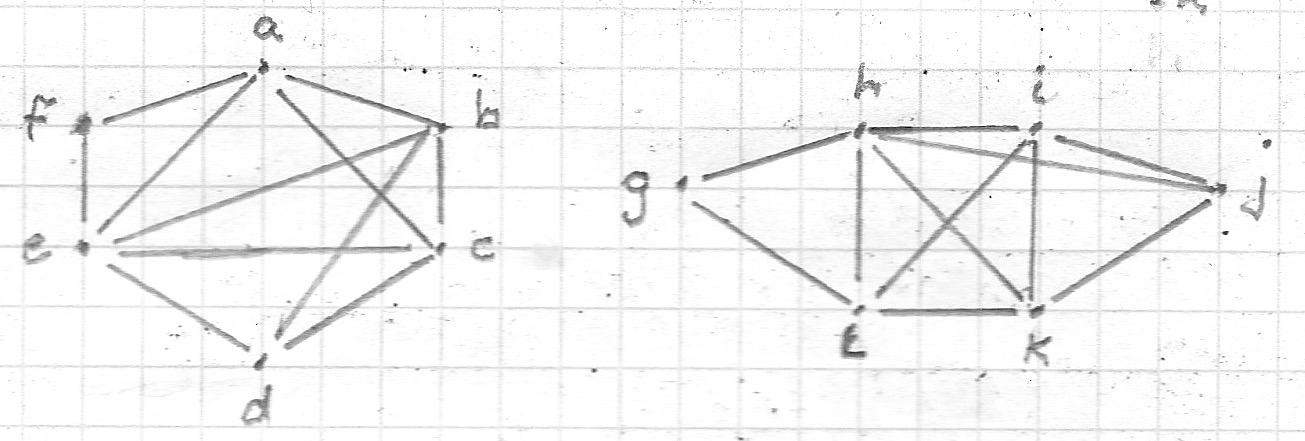 a
f
b
e
c
d
h
i
g
j
l
k